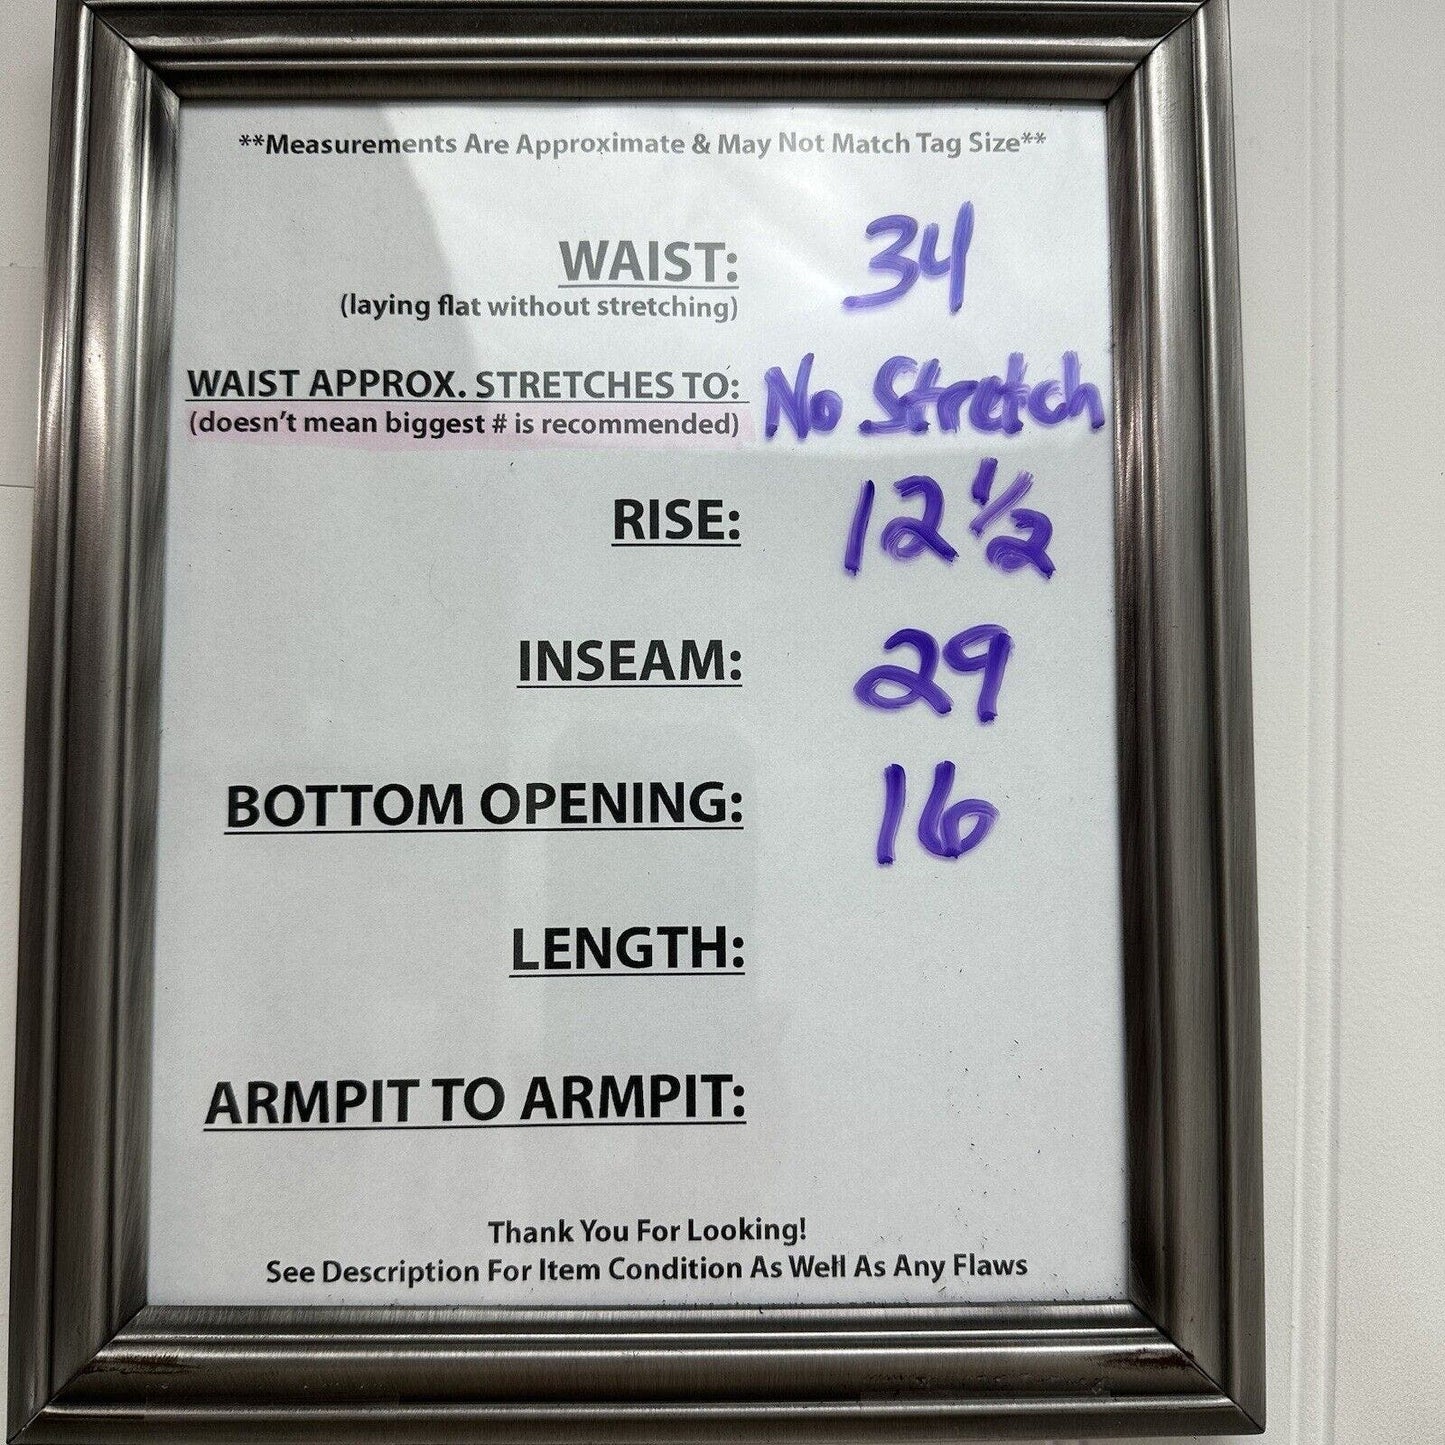 **Measurements Are Approximate & May Not Match Tag Size**
WAIST: 34
(laying flat without stretching)
WAIST APPROX. STRETCHES TO: No Stretch
(doesn't mean biggest # is recommended)
RISE: 12 1/2
INSEAM: 29
BOTTOM OPENING: 16
LENGTH:
ARMPIT TO ARMPIT:
Thank You For Looking!
See Description For Item Condition As Well As Any Flaws